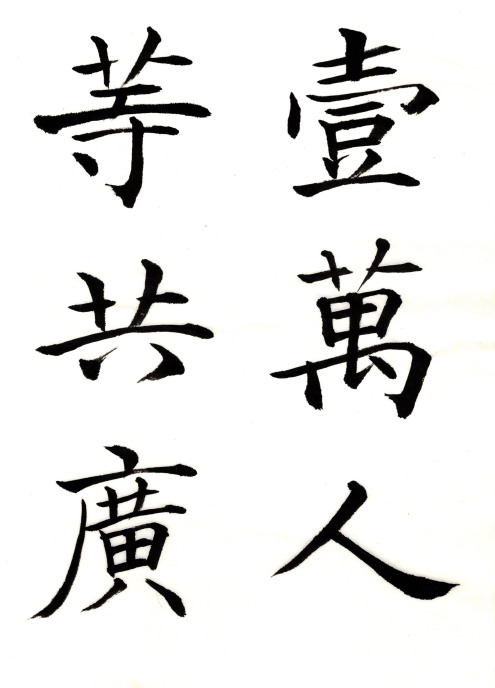 壹萬人
等共廣